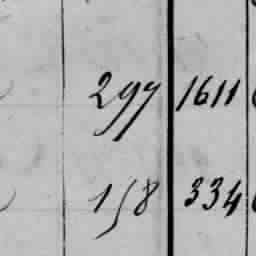 297 1611
158 334